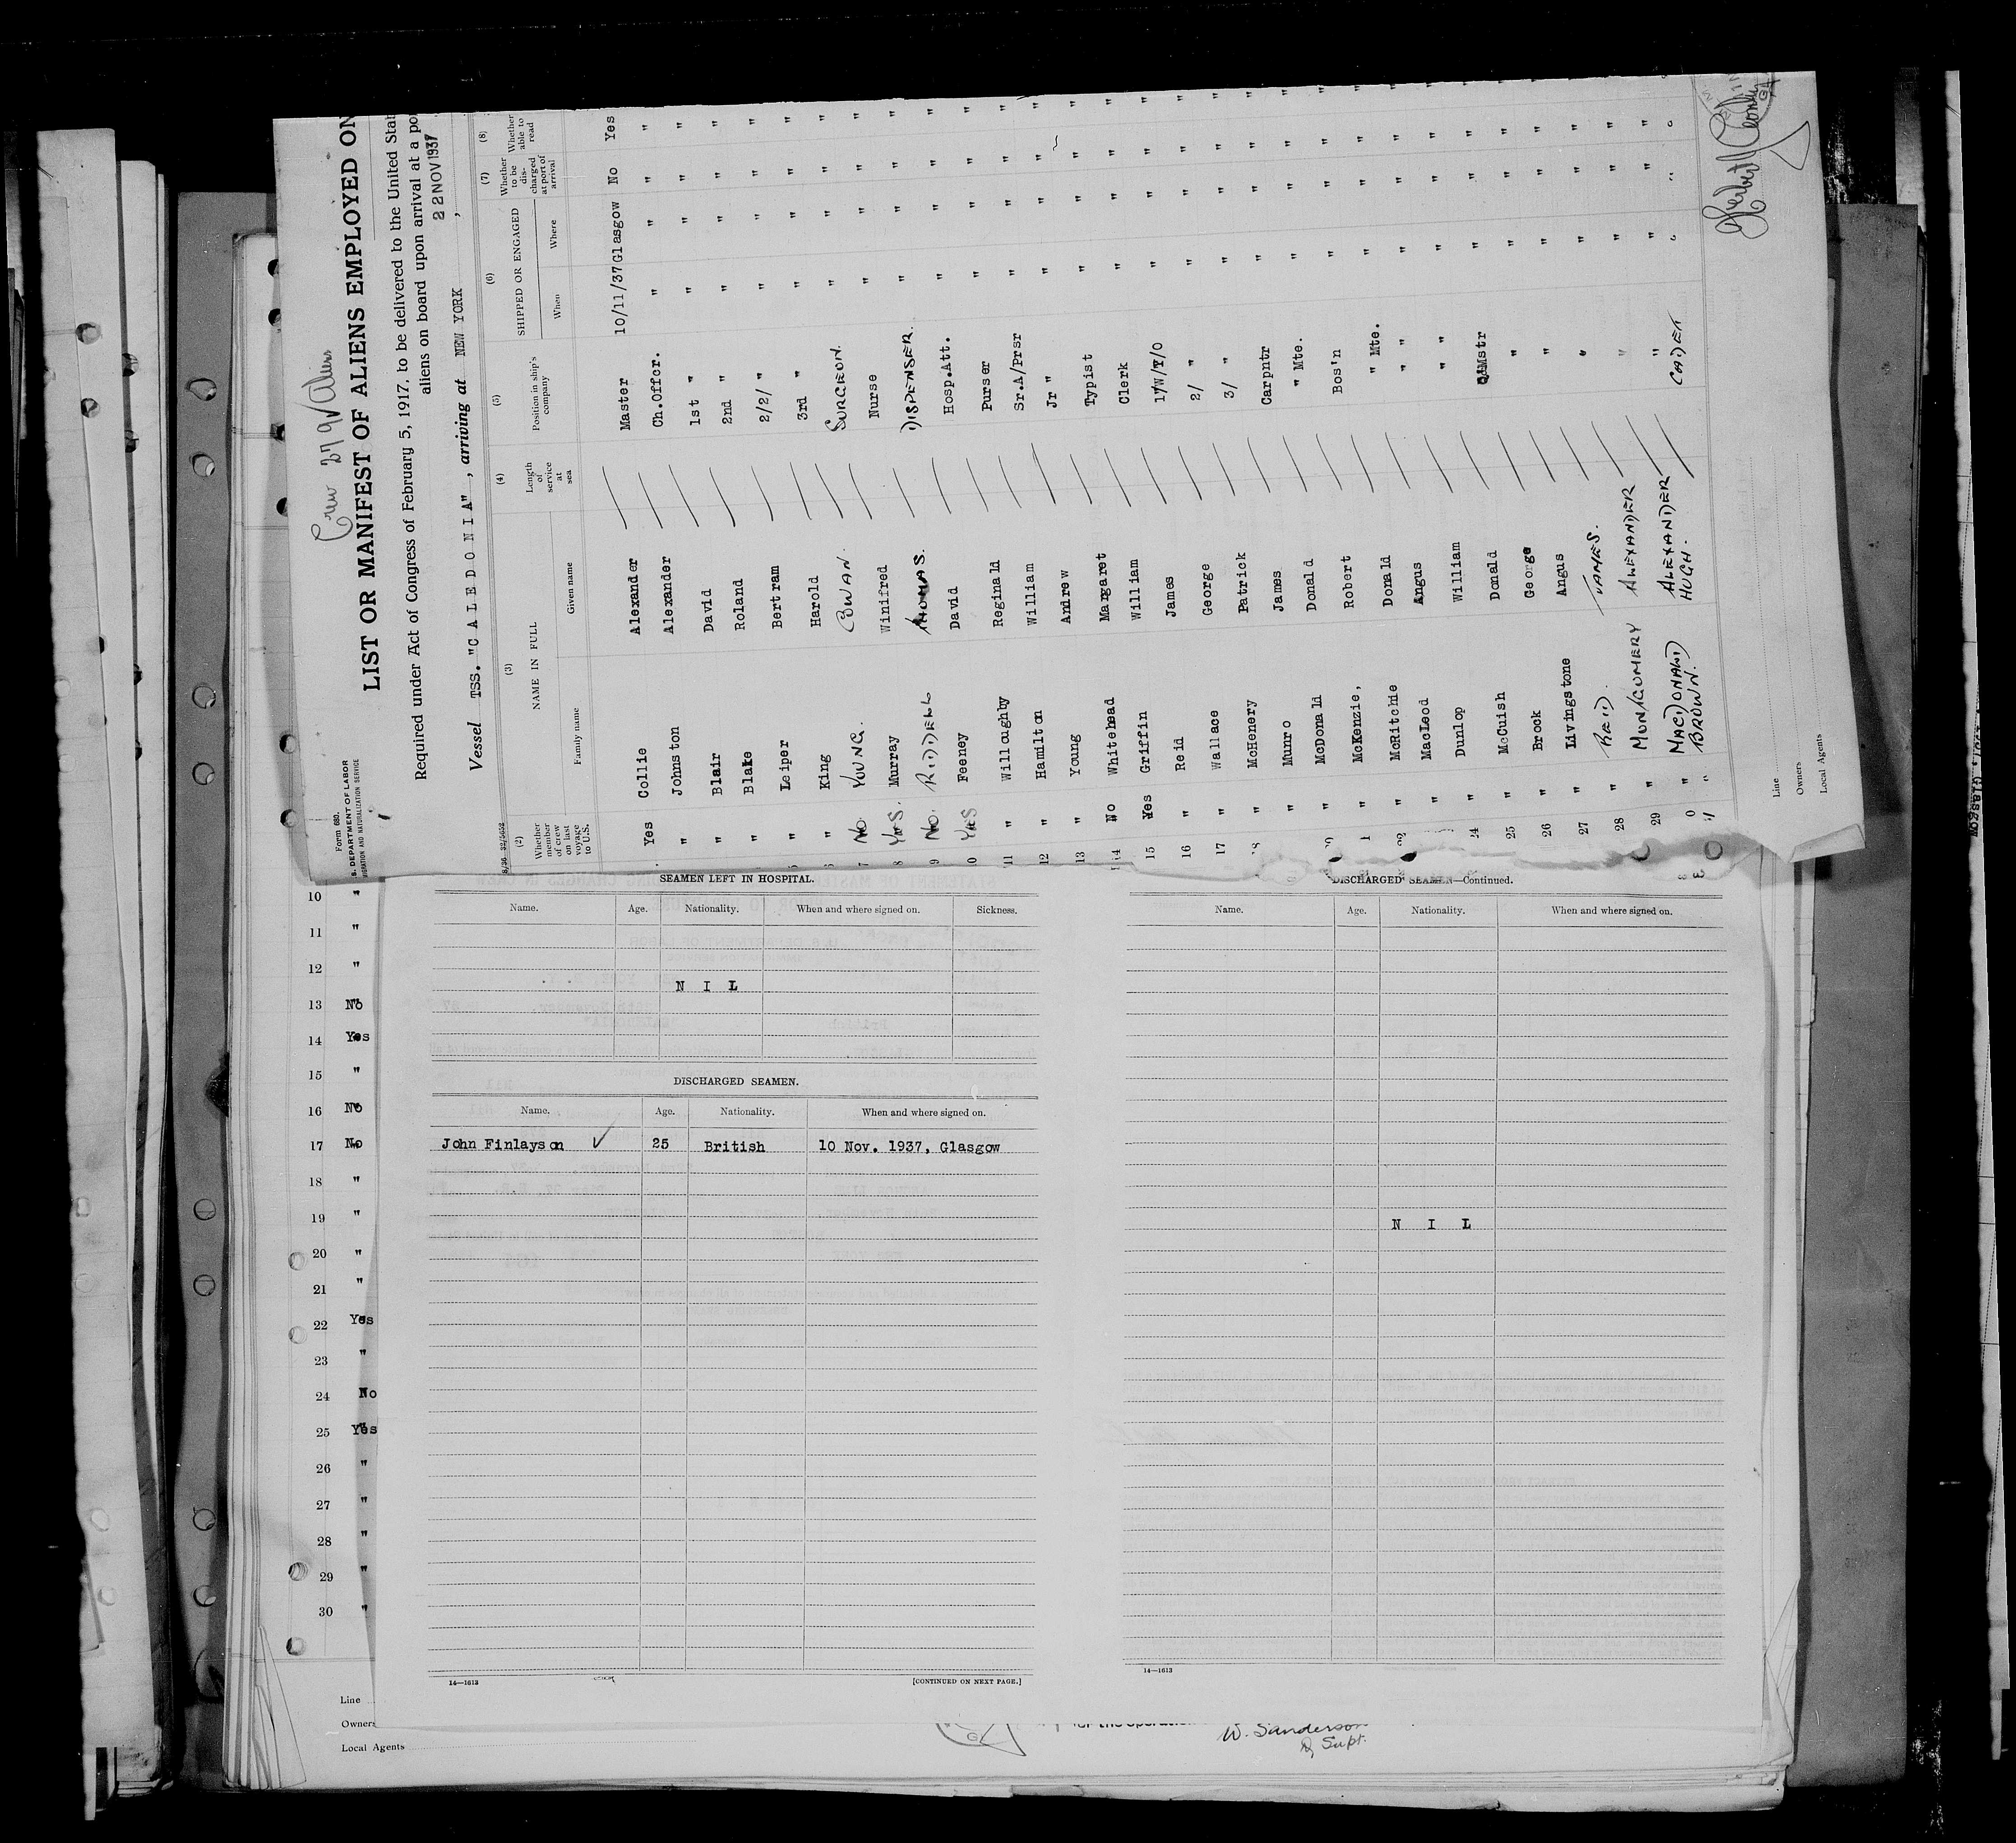 Crew 279 ✓ Aliens
Form 680.
S. DEPARTMENT OF LABOR
IMMIGRATION AND NATURALIZATION SERVICE
LIST OR MANIFEST OF ALIENS EMPLOYED ON
Required under Act of Congress of February 5, 1917, to be delivered to the United Stat
aliens on board upon arrival at a po
22 NOV 1937
Vessel TSS. "CALEDONIA" , arriving at NEW YORK ,
(2) (3) (4) (5) (6) (7) (8)
Whether member of crew on last voyage to U.S. NAME IN FULL Length of service at sea Position in ship's company SHIPPED OR ENGAGED Whether to be dis-charged at port of arrival Whether able to read
Family name Given name When Where
Yes Collie Alexander Master 10/11/37 Glasgow No Yes
" Johnston Alexander Ch.Offcr. " " " "
" Blair David 1st " " " " "
" Blake Roland 2nd " " " " "
5 " Leiper Bertram 2/2/ " " " " "
6 " King Harold 3rd " " " " "
7 No YOUNG. COWAN. SURGEON. " " " "
8 YES. Murray Winifred Nurse " " " "
9 NO. RIDDELL THOMAS. DISPENSER. " " " "
10 YES Feeney David Hosp.Att. " " " "
11 " Willoughby Reginald Purser " " " "
12 " Hamilton William Sr.A/Prsr " " " "
13 " Young Andrew Jr " " " " "
14 No Whitehead Margaret Typist " " " "
15 Yes Griffin William Clerk " " " "
16 " Reid James 1/W/T/O " " " "
17 " Wallace George 2/ " " " " "
18 " McHenery Patrick 3/ " " " " "
" Munro James Carpntr " " " "
" McDonald Donald " Mte. " " " "
" McKenzie, Robert Bos'n " " " "
22 " McRitchie Donald " Mte. " " " "
" MacLeod Angus " " " " " "
24 " Dunlop William " " " " " "
25 " McCuish Donald Q/Mstr " " " "
26 " Brock George " " " " "
27 " Livingstone Angus " " " " "
28 " REID. JAMES. " " " " "
29 " MONTGOMERY ALEXANDER " " " " "
0 " MACDONALD ALEXANDER " " " " "
" BROWN. HUGH. CADET " " "
Line
Owners
Local Agents
SEAMEN LEFT IN HOSPITAL.
Name. Age. Nationality. When and where signed on. Sickness.
N I L
DISCHARGED SEAMEN.
Name. Age. Nationality. When and where signed on.
John Finlayson ✓ 25 British 10 Nov. 1937, Glasgow
14—1613 [CONTINUED ON NEXT PAGE.]
DISCHARGED SEAMEN—Continued.
Name. Age. Nationality. When and where signed on.
N I L
14—1613
10 "
11 "
12 "
13 No
14 Yes
15 "
16 No
17 No
18 "
19 "
20 "
21 "
22 Yes
23 "
24 No
25 Yes
26 "
27 "
28 "
29 "
30 "
Line
Owners
Local Agents
W. Sanderson
Supt.